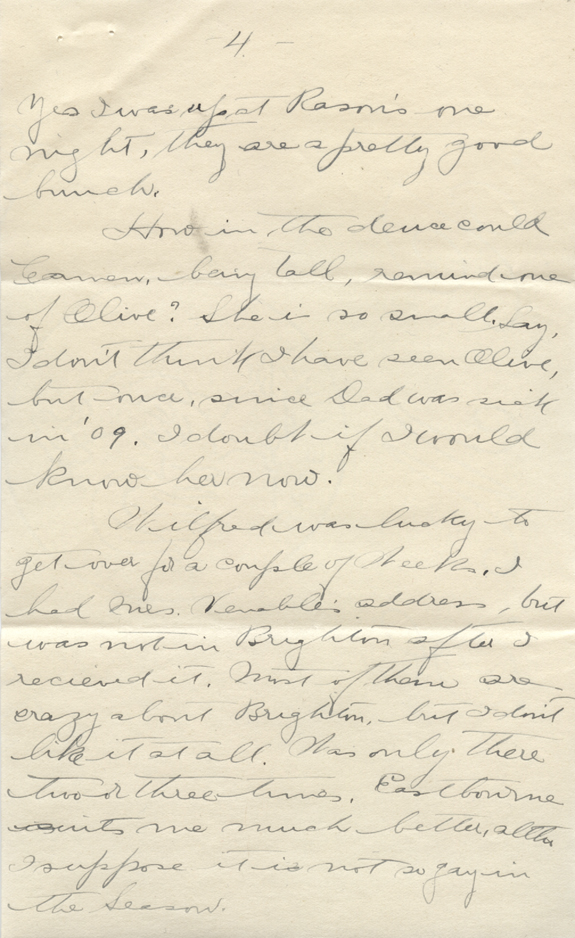 - 4 -
Yes I was up at Rason's one
night, they are a pretty good
bunch.
How in the deuce could
Carmen, being tall, remind one
of Olive? She is so small. Say,
I don't think I have seen Olive,
but once, since Dad was sick
in '09. I doubt if I would
know her now.
Wilfred was lucky to
get over for a couple of Weeks. I
had Mrs. Venable's address, but
was not in Brighton after I
recieved it. Most of them are
crazy about Brighton, but I don't
like it at all. Was only there
two or three times. Eastbourne
suits me much better, altho
I suppose it is not so gay in
the Season.